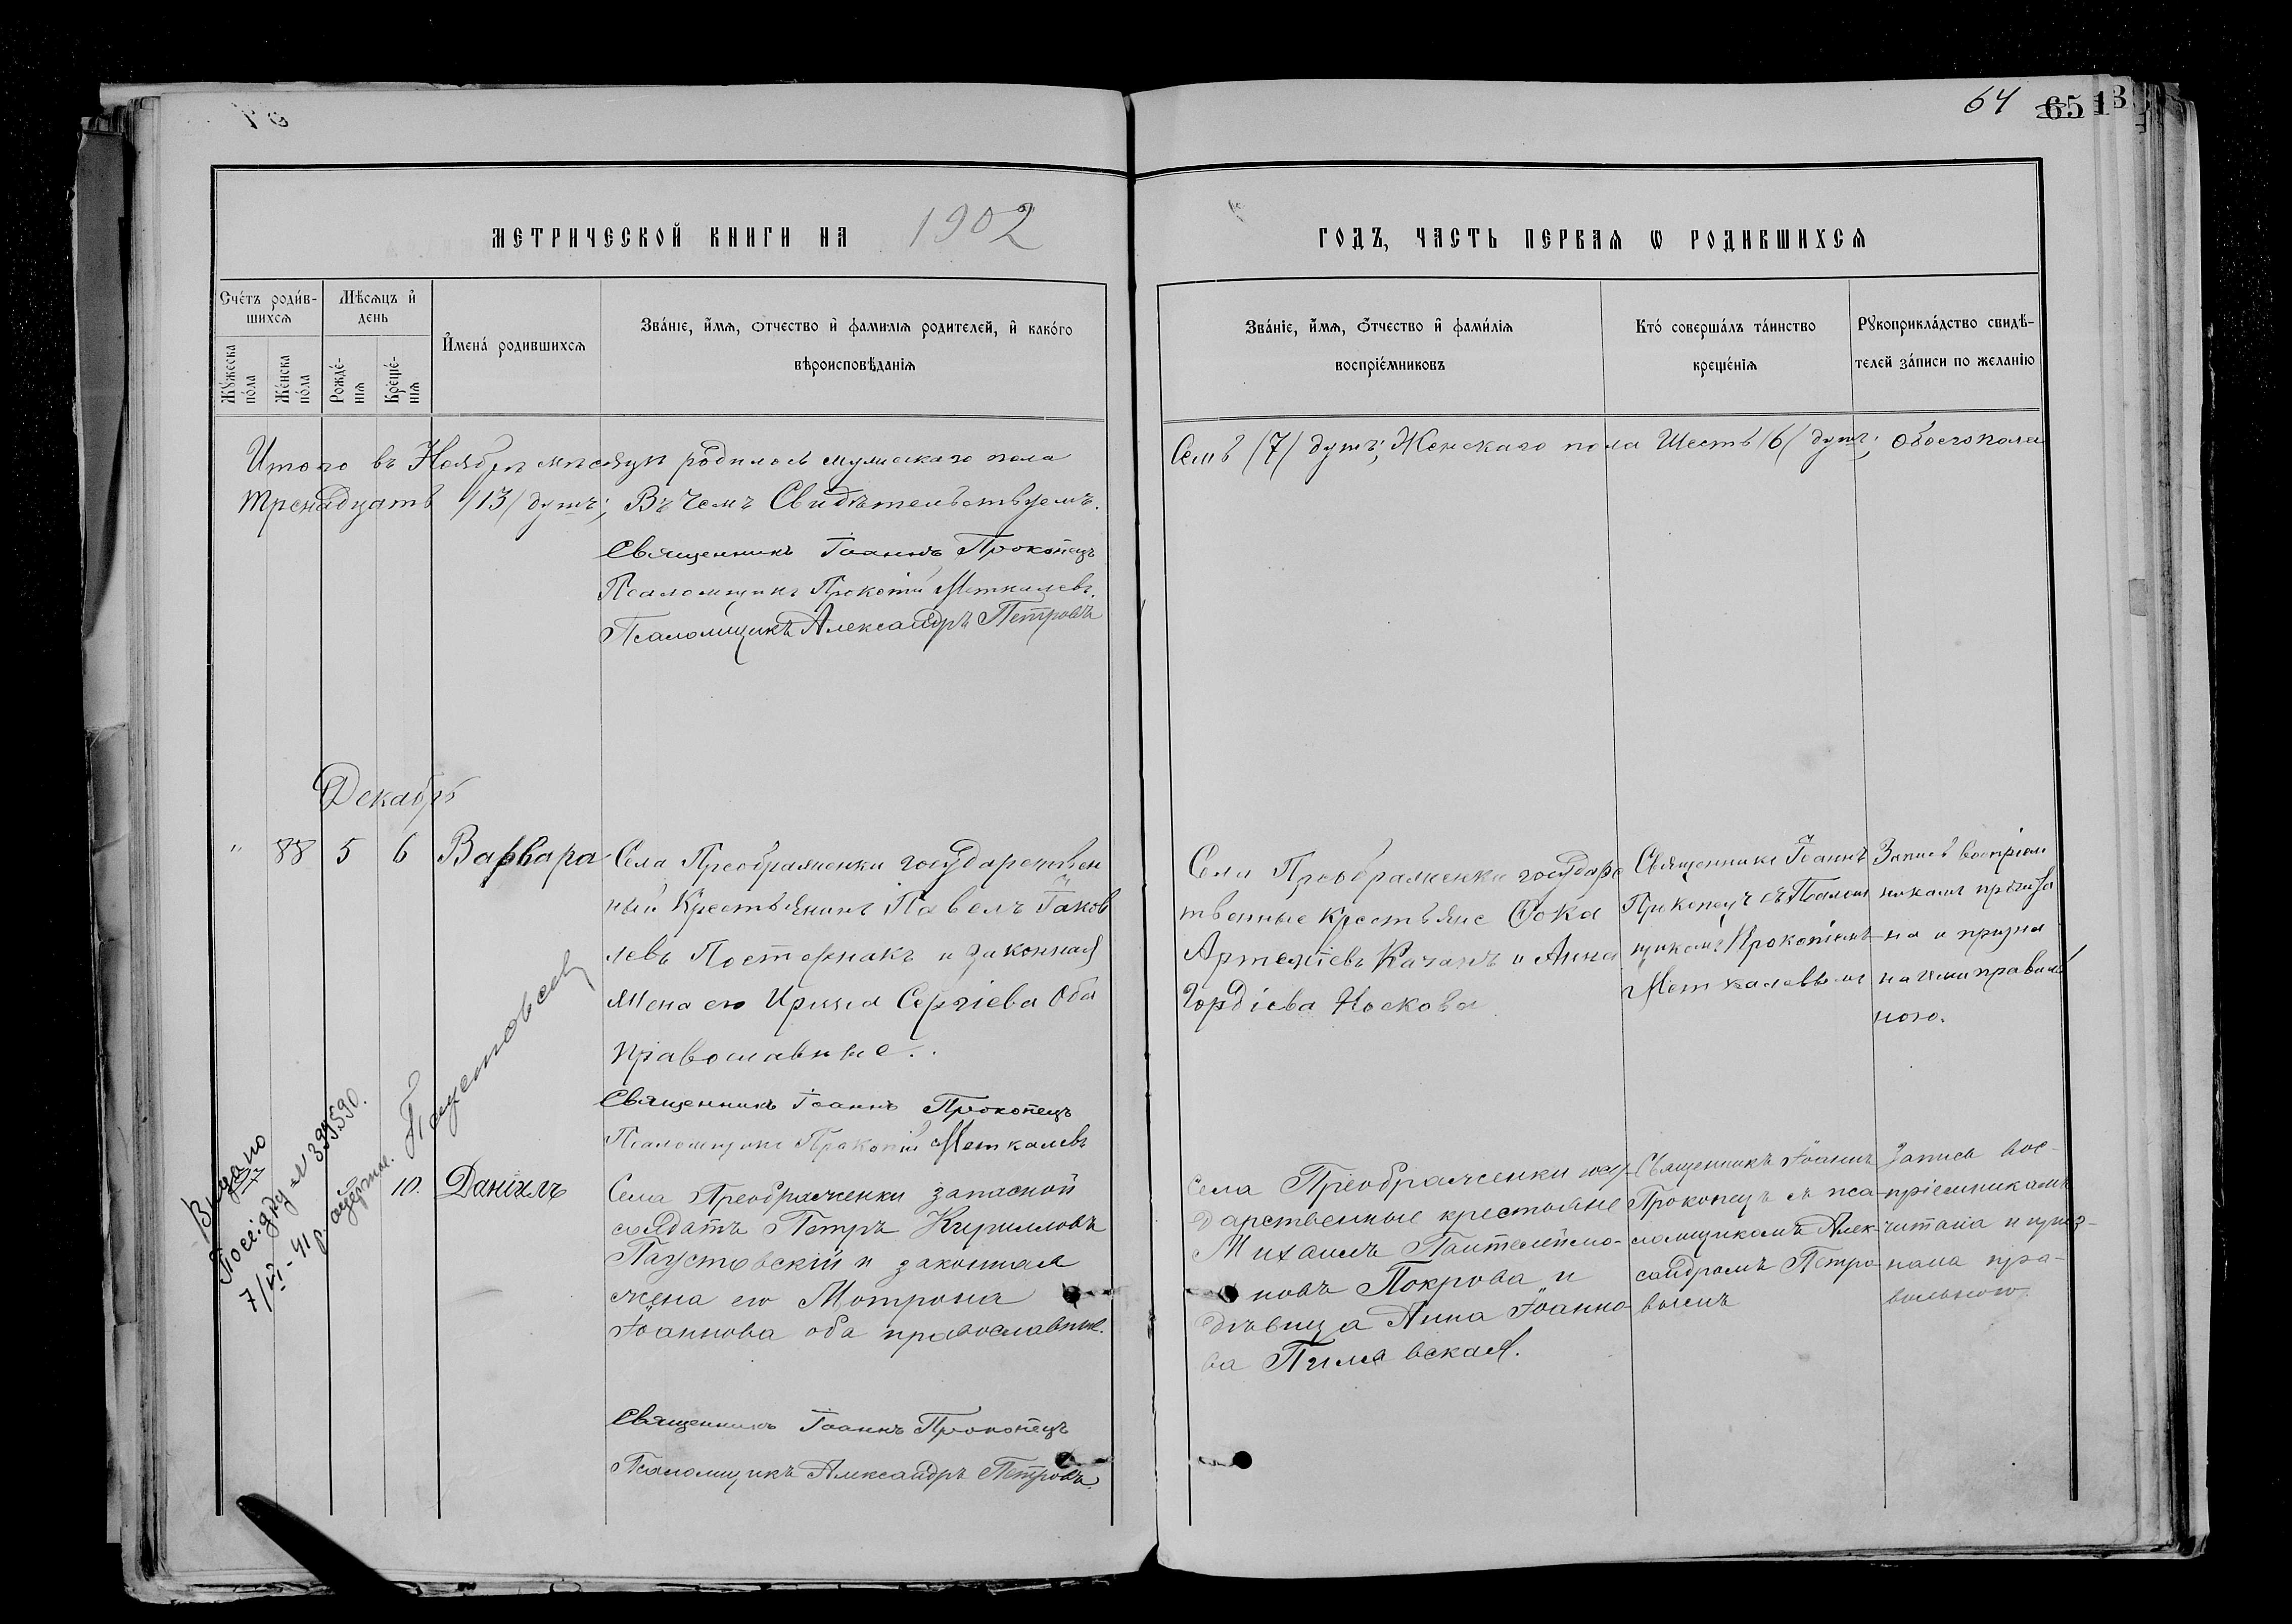 64 65
МЕТРИЧЕСКОЙ КНИГИ НА 1902
ГОДЪ, ЧАСТЬ ПЕРВАЯ Ѡ РОДИВШИХСЯ
Сче́тъ роди́в-
шихся
Мѣ́сяцъ и҆
день
Мꙋ́жеска
по́ла
Же́нска
по́ла
Рожде́-
нїя
Креще́-
нїя
И҆мена́ родившихся
Зва́нїе, и҆́мя, о҆́тчество и҆ фами́лїя родителей, и҆ како́го
вѣроисповѣ́данїя
Зва́нїе, и҆́мя, о҆́тчество и҆ фами́лїя
воспрїе́мниковъ
Кто́ соверша́лъ та́инство
креще́нїя
Рꙋкоприкла́дство свидѣ́-
телей за́писи по желанїю
Итого въ Ноябрѣ мѣсяцѣ родилось мужескаго пола
Семь /7/ душъ; Женскаго пола Шесть /6/ душъ; обоего пола
Тренадцать /13/ душъ; Въ чемъ Свидѣтельствуемъ.
Священникъ Іоаннъ Прокопецъ
Псаломщикъ Прокопій Меткалевъ.
Псаломщикъ Александръ Петровъ
Декабрь
" 88 5 6 Варвара
Села Преображенки государствен
ный Крестьянинъ Павелъ Іаков
левъ Постернакъ и законная
жена его Ирина Сергіева Оба
православные.
Священникъ Іоаннъ Прокопецъ
Псаломщикъ Прокопій Меткалевъ
Села Преображенки государс
твенные Крестьяне Фока
Артеміевъ Качанъ и Анна
Гордіева Носкова
Священникъ Іоаннъ
Прокопецъ съ Псалом
щикомъ Прокопіемъ
Меткалевымъ
Запись воспріем
никамъ прочита
на и призна
на ими правиль
ною.
Выдано
7/VI-41 р.
Паустовсев
10. Даніилъ
Села Преображенки запасной
солдатъ Петръ Кирилловъ
Паустовскій и законная
жена его Мотрона
Іоаннова оба православные.
Священникъ Іоаннъ Прокопецъ
Псаломщикъ Александръ Петровъ.
Села Преображенки госу-
дарственные крестьяне
Михаилъ Пантелеймо-
новъ Покрова и
дѣвица Анна Іоанно-
ва
Священникъ Іоаннъ
Прокопецъ съ пса-
ломщикомъ Алек-
сандромъ Петро
вымъ
Запись вос-
пріемникамъ
читана и приз-
нана пра-
вильною.